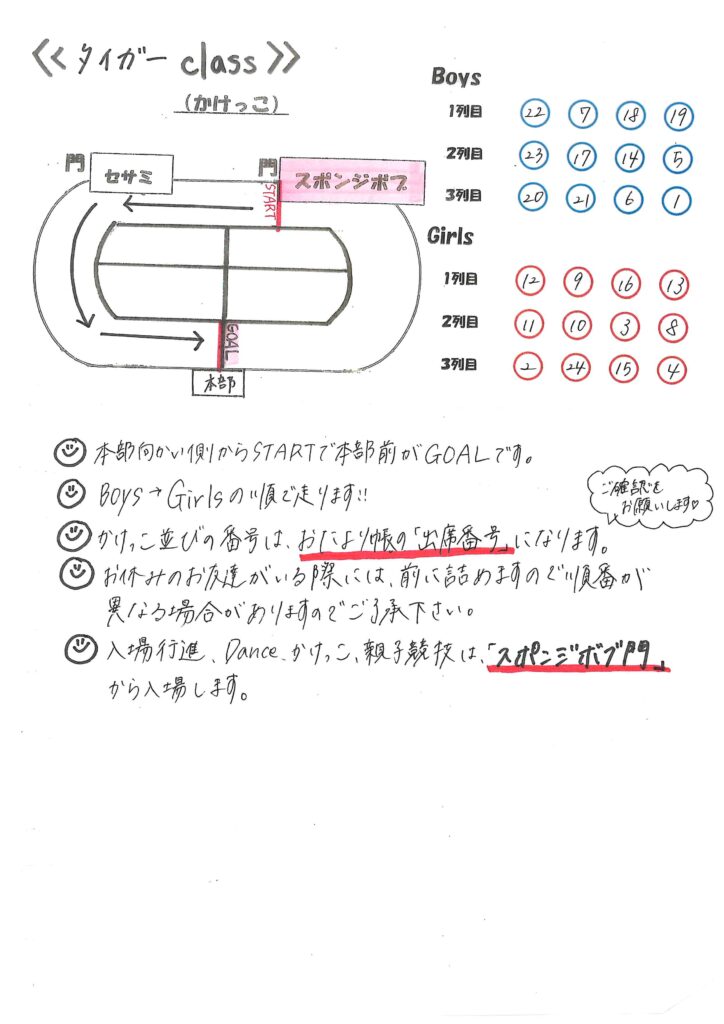 ≪タイガー class≫
(かけっこ)
門 セサミ
門 スポンジボブ
START
GOAL
本部
Boys
1列目 22 7 18 19
2列目 23 17 14 5
3列目 20 21 6 1
Girls
1列目 12 9 16 13
2列目 11 10 3 8
3列目 2 24 15 4
本部向かい側からSTARTで本部前がGOALです。
Boys→Girlsの順で走ります!!
ご確認を
お願いします♡
かけっこ並びの番号は、おたより帳の「出席番号」になります。
お休みのお友達がいる際には、前に詰めますので順番が
異なる場合がありますのでご了承下さい。
入場行進、Dance、かけっこ、親子競技は、「スポンジボブ門」
から入場します。